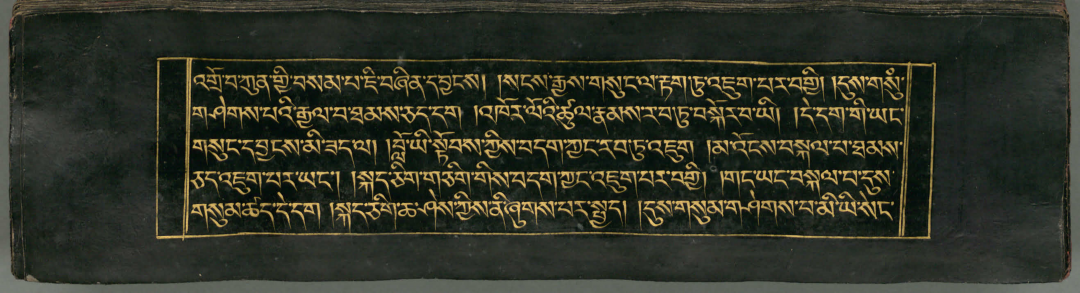 འགྲོ་བ་ཀུན་གྱི་བསམ་པ་ཇི་བཞིན་དབྱངས། །སངས་རྒྱས་གསུང་ལ་རྟག་ཏུ་འཇུག་པར་བགྱི། །དུས་གསུཾ་
གཤེགས་པའི་རྒྱལ་བ་ཐམས་ཅད་དག །འཁོར་ལོའི་ཚུལ་རྣམས་རབ་ཏུ་བསྐོར་བ་ཡི། །དེ་དག་གི་ཡང་
གསུང་དབྱངས་མི་ཟད་ལ། །བློ་ཡི་སྟོབས་ཀྱིས་བདག་ཀྱང་རབ་ཏུ་འཇུག །མ་འོངས་བསྐལ་པ་ཐམས་
ཅད་འཇུག་པར་ཡང་། །སྐད་ཅིག་གཅིག་གིས་བདག་ཀྱང་འཇུག་པར་བགྱི། །གང་ཡང་བསྐལ་པ་དུས་
གསུམ་ཚད་དེ་དག །སྐད་ཅིག་ཆ་ཤས་ཀྱིས་ནི་ཞུགས་པར་སྤྱད། །དུས་གསུམ་གཤེགས་པ་མི་ཡི་སེང་